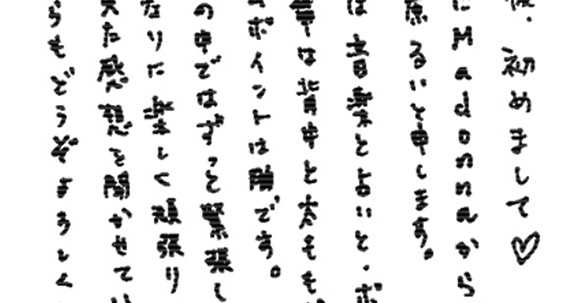 初めまして♡
にMadonnaから
原るいと申します。
は音楽とよいと・ボ
は背中と太もも
ポイントは隣です。
の中ではずっと緊張し
なりに楽しく頑張り
えた感想を聞かせてい
らもどうぞよろしく